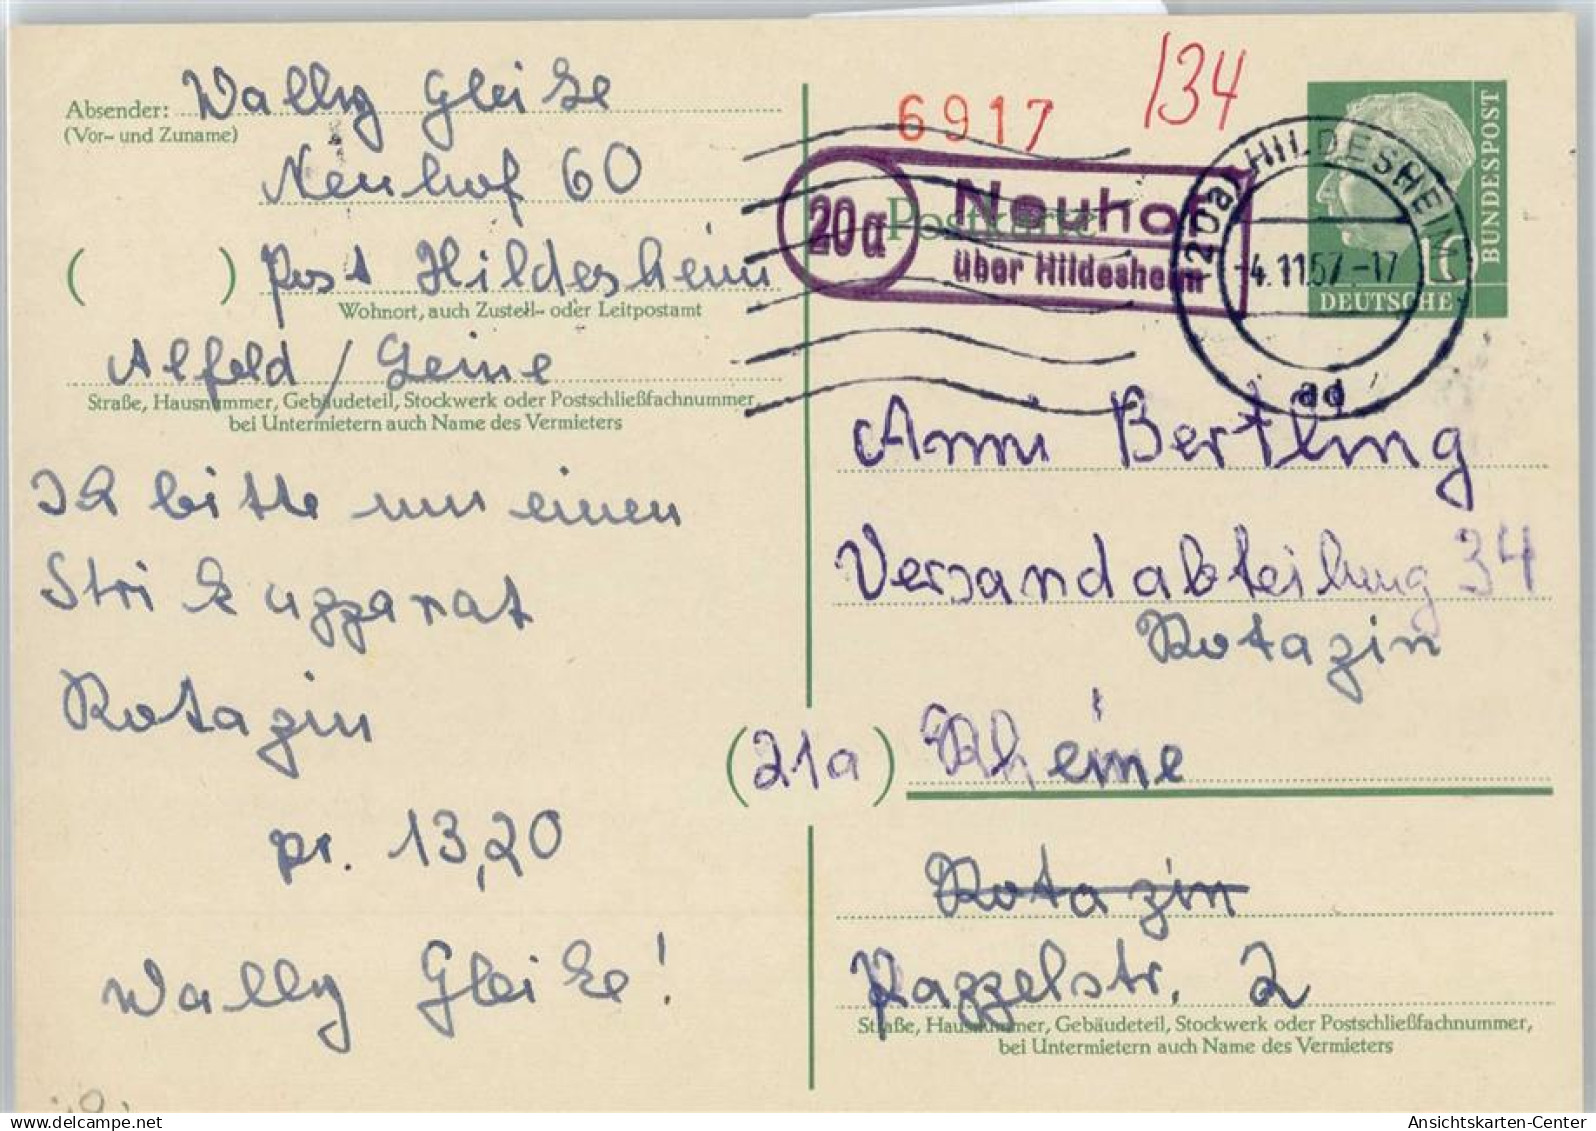 Absender: Wally Gleike
(Vor- und Zuname)
Neuhof 60
( ) Post Hildesheim
Wohnort, auch Zustell- oder Leitpostamt
Alfeld / Leine
Straße, Hausnummer, Gebäudeteil, Stockwerk oder Postschließfachnummer,
bei Untermietern auch Name des Vermieters
Ich bitte um einen
Strikapparat
Rotazin
pr. 13,20
Wally Gleike!
6917
134
Postkarte
20a
Neuhof
über Hildesheim
(20a) HILDESHEIM
-4.11.57.-17
ad
DEUTSCHE
BUNDESPOST
10
Anni Bertling
Versandabteilung 34
Rotazin
(21a) Rheine
Rotazin
Pappelstr. 2
Straße, Hausnummer, Gebäudeteil, Stockwerk oder Postschließfachnummer,
bei Untermietern auch Name des Vermieters
Ansichtskarten-Center